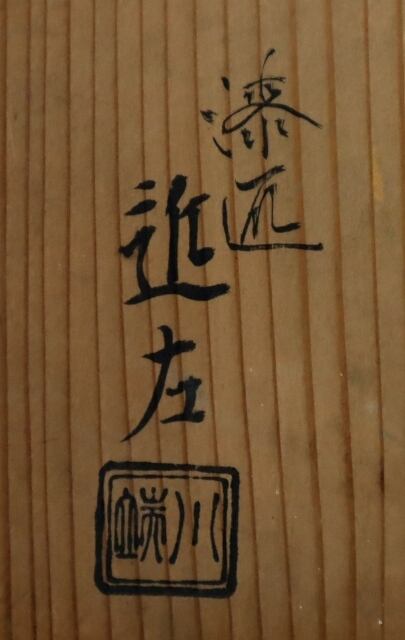 漆匠
近左
川端